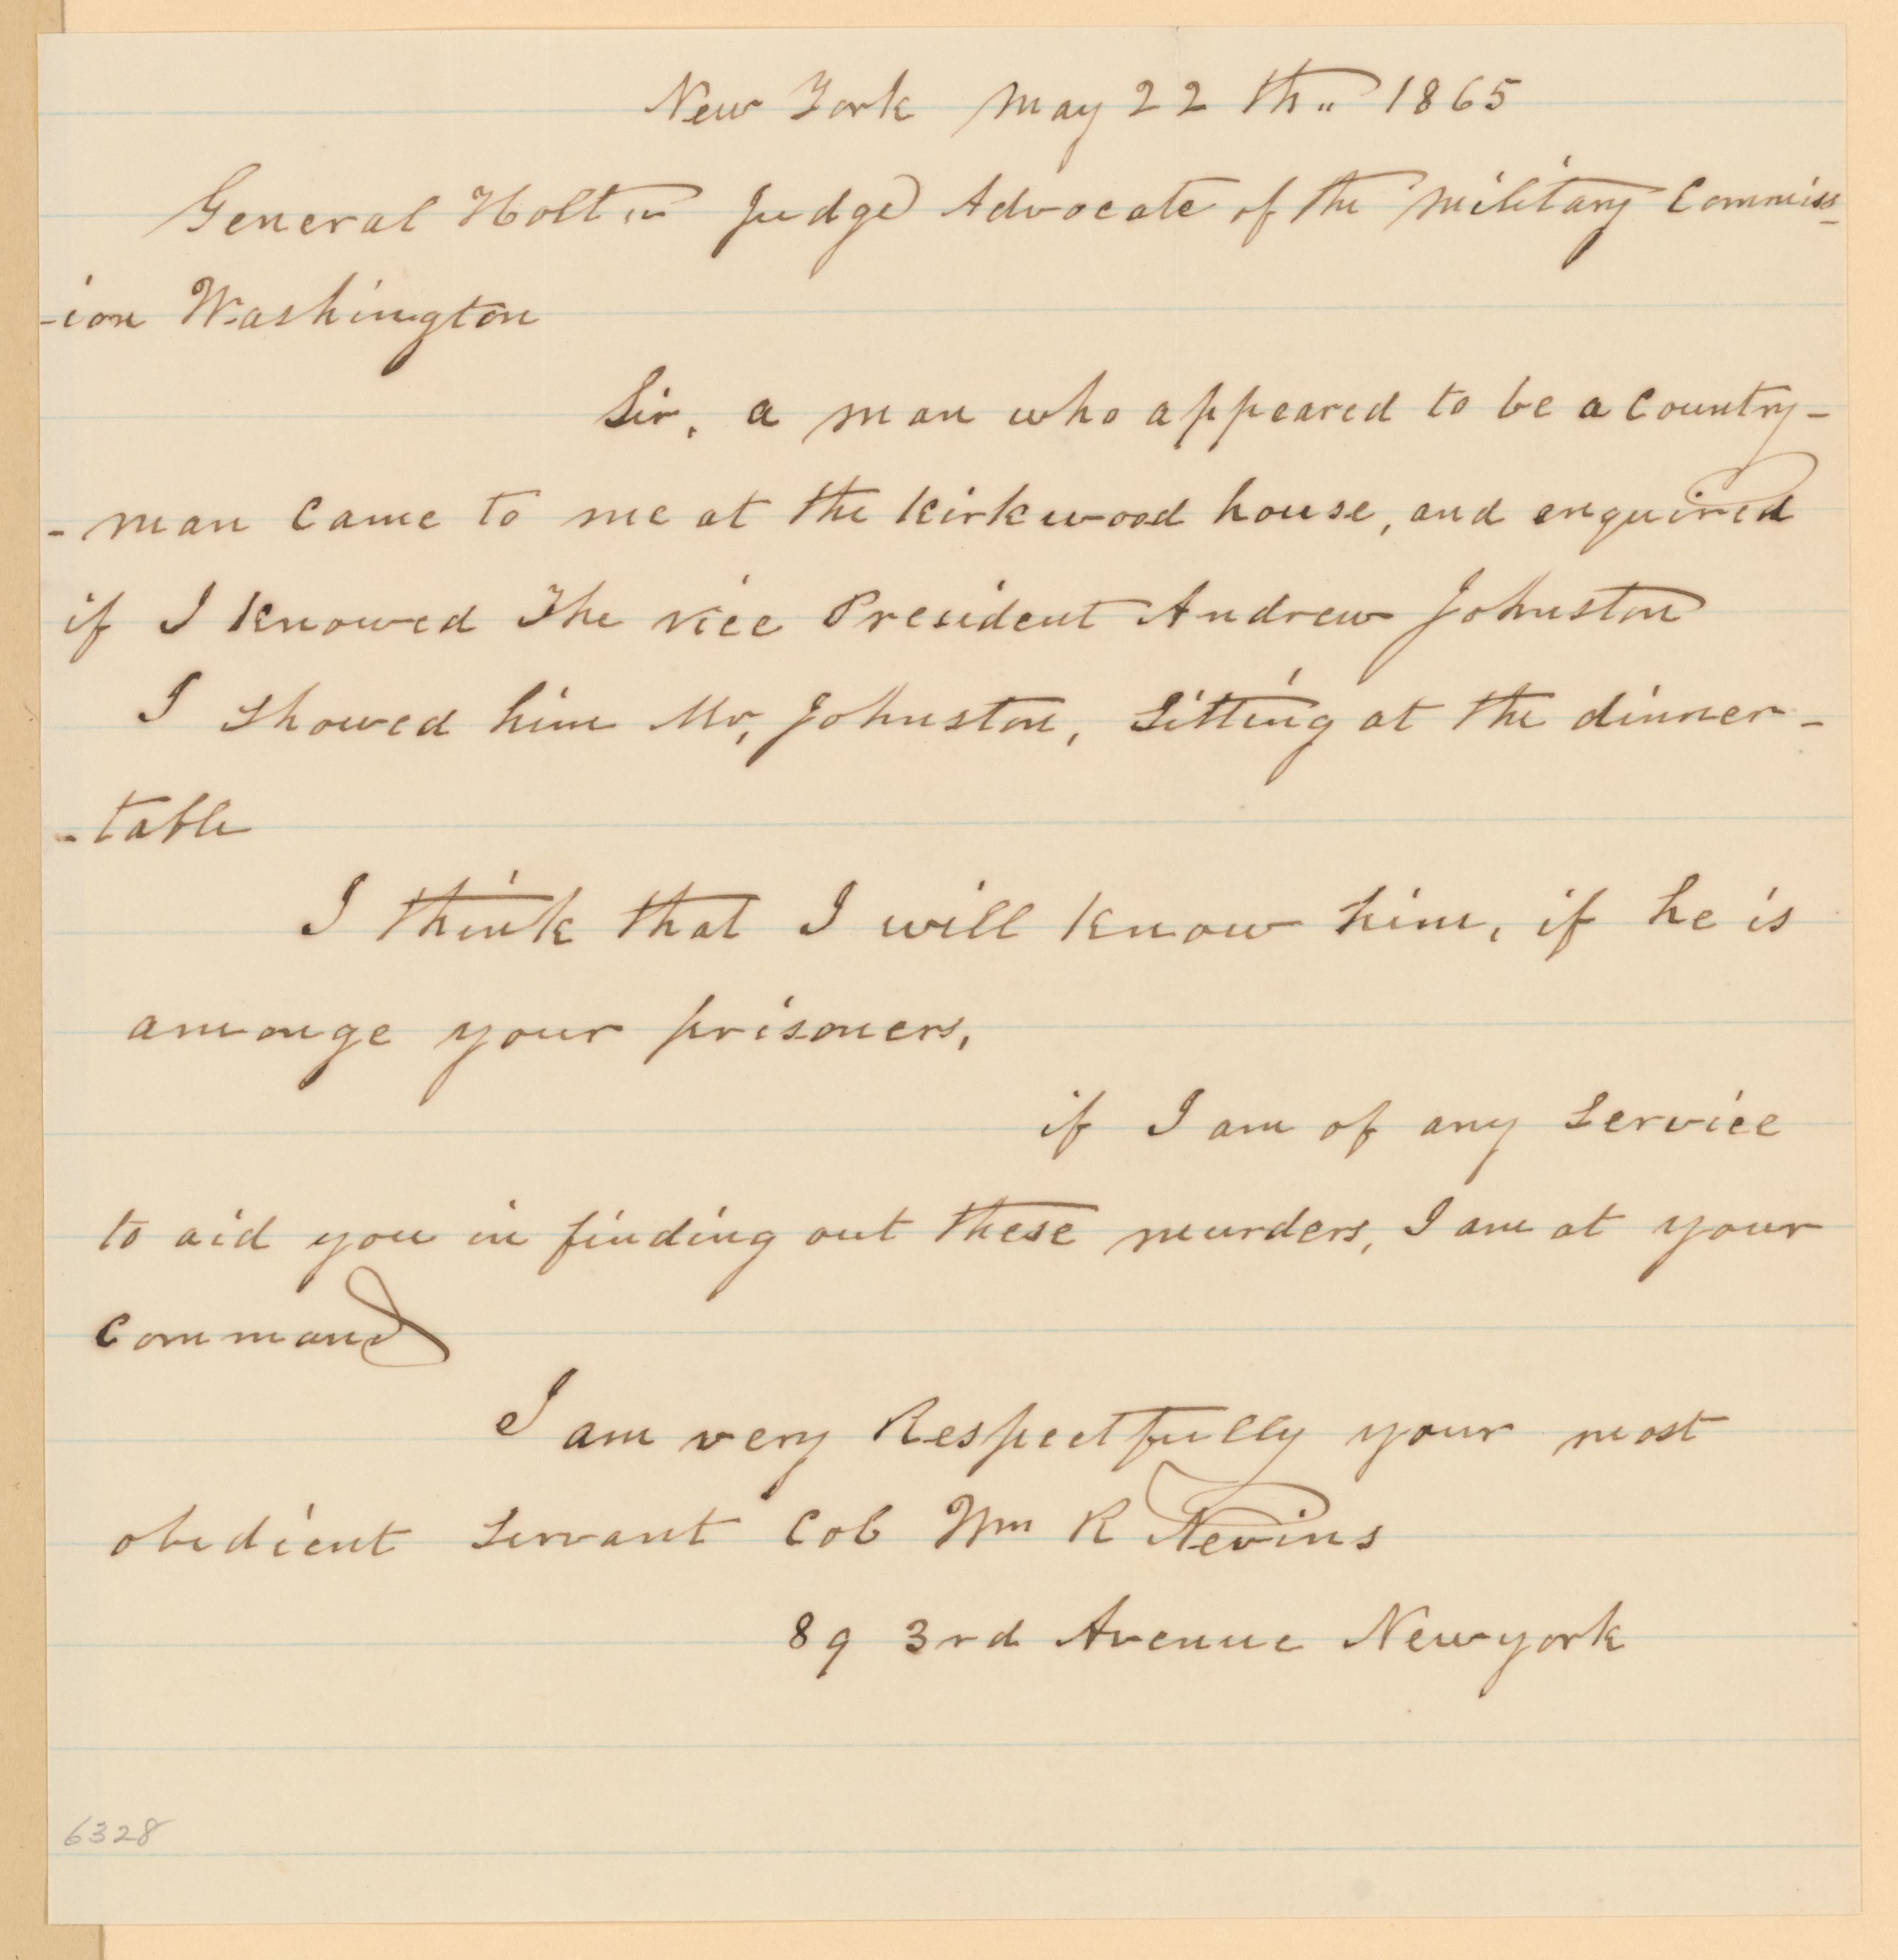 New York May 22 th,, 1865
General Holt,, Judge Advocate of the Military Commiss-
-ion Washington
Sir, a man who appeared to be a country-
-man came to me at the Kirkwood house, and enquired
if I knowed The vice President Andrew Johnston
I showed him Mr, Johnston, sitting at the dinner-
-table
I think that I will know him, if he is
amonge your prisoners,
if I am of any service
to aid you in finding out these murders, I am at your
command
I am very Respectfully your most
obedient servant Col Wm R Nevins
89 3rd Avenue Newyork
6328